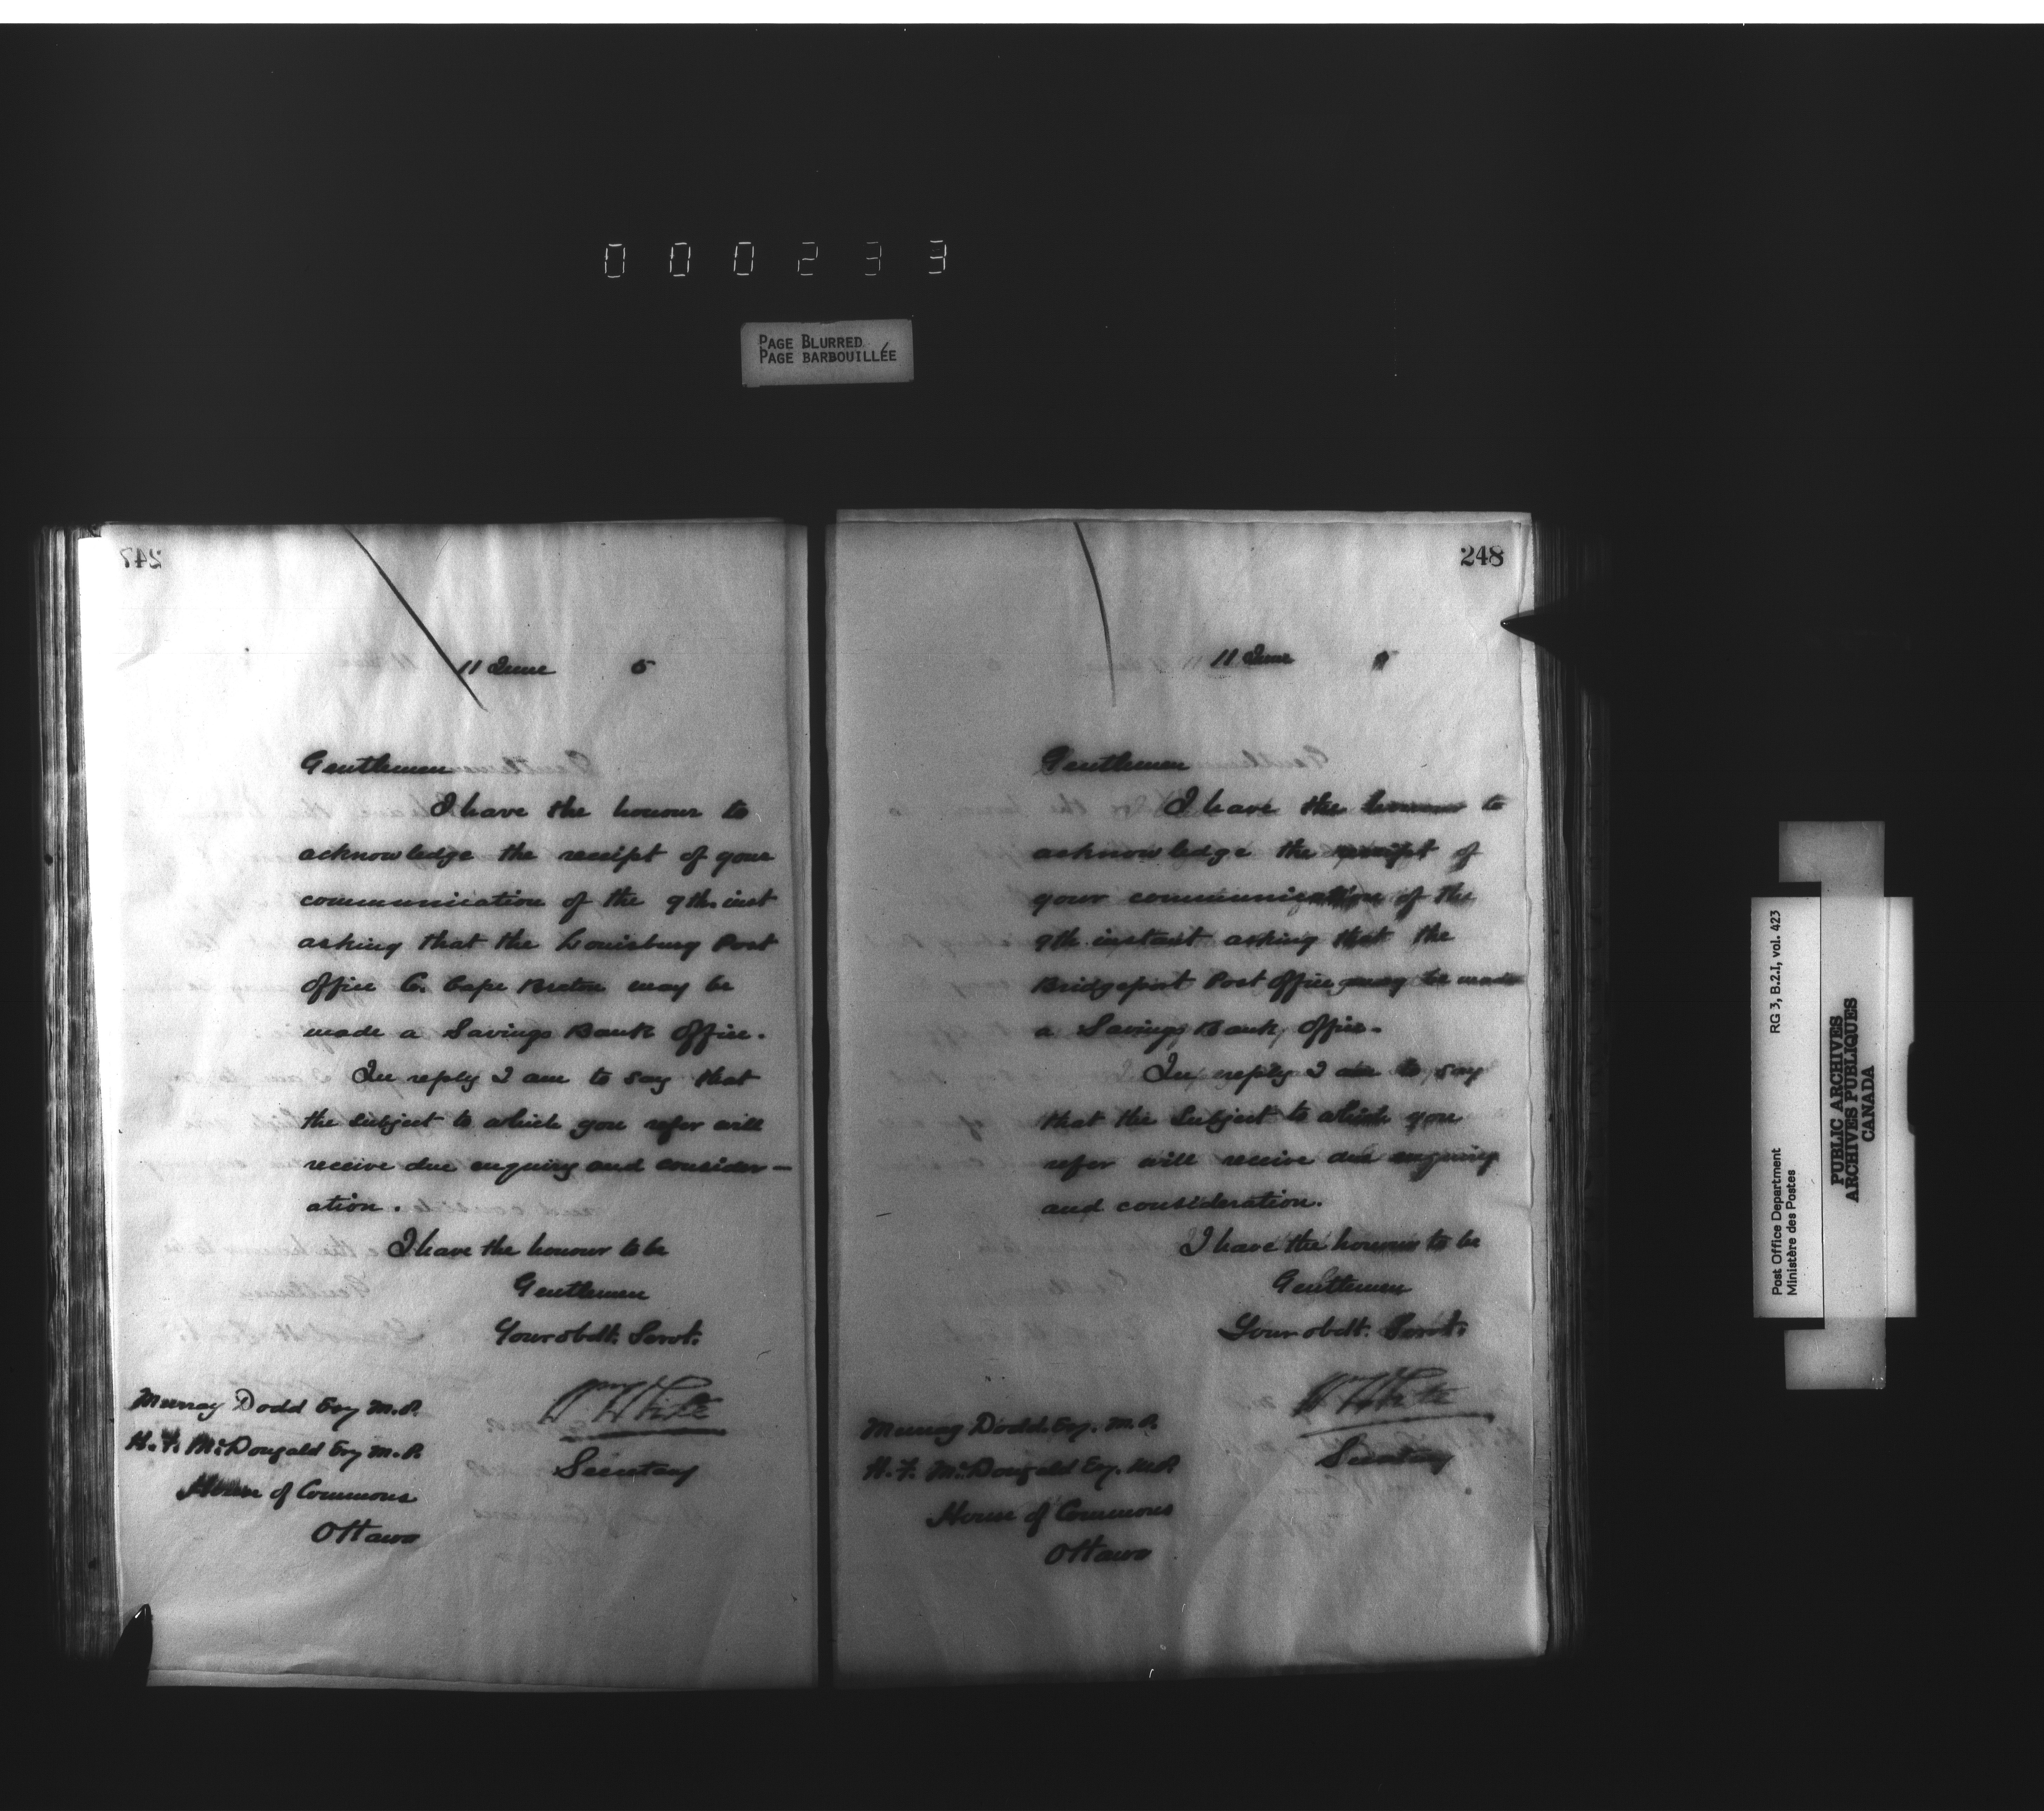 000233
PAGE BLURRED
PAGE BARBOUILLÉE
247
11 June 5
Gentlemen
I have the honour to
acknowledge the receipt of your
communication of the 9th. inst
asking that the Louisburg Post
Office C. Cape Breton may be
made a Savings Bank Office.
In reply I am to say that
the subject to which you refer will
receive due enquiry and consider-
ation.
I have the honour to be
Gentlemen
Your obdt. Servt.
Wm White
Secretary
Murray Dodd Esq M.P.
H. F. McDougald Esq M.P.
House of Commons
Ottawa
248
11 June
Gentlemen
I have the honour to
acknowledge the receipt of
your communication of the
9th instant asking that the
Bridgeport Post Office may be made
a Savings Bank, Office.
In reply I am to say
that the subject to which you
refer will receive due enquiry
and consideration.
I have the honour to be
Gentlemen
Your obdt. Servt.
Wm White
Secretary
Murray Dodd. Esq. M.P.
H. F. McDougald Esq. M.P.
House of Commons
Ottawa
Post Office Department RG 3, B.2.I, vol. 423
Ministère des Postes
PUBLIC ARCHIVES
ARCHIVES PUBLIQUES
CANADA